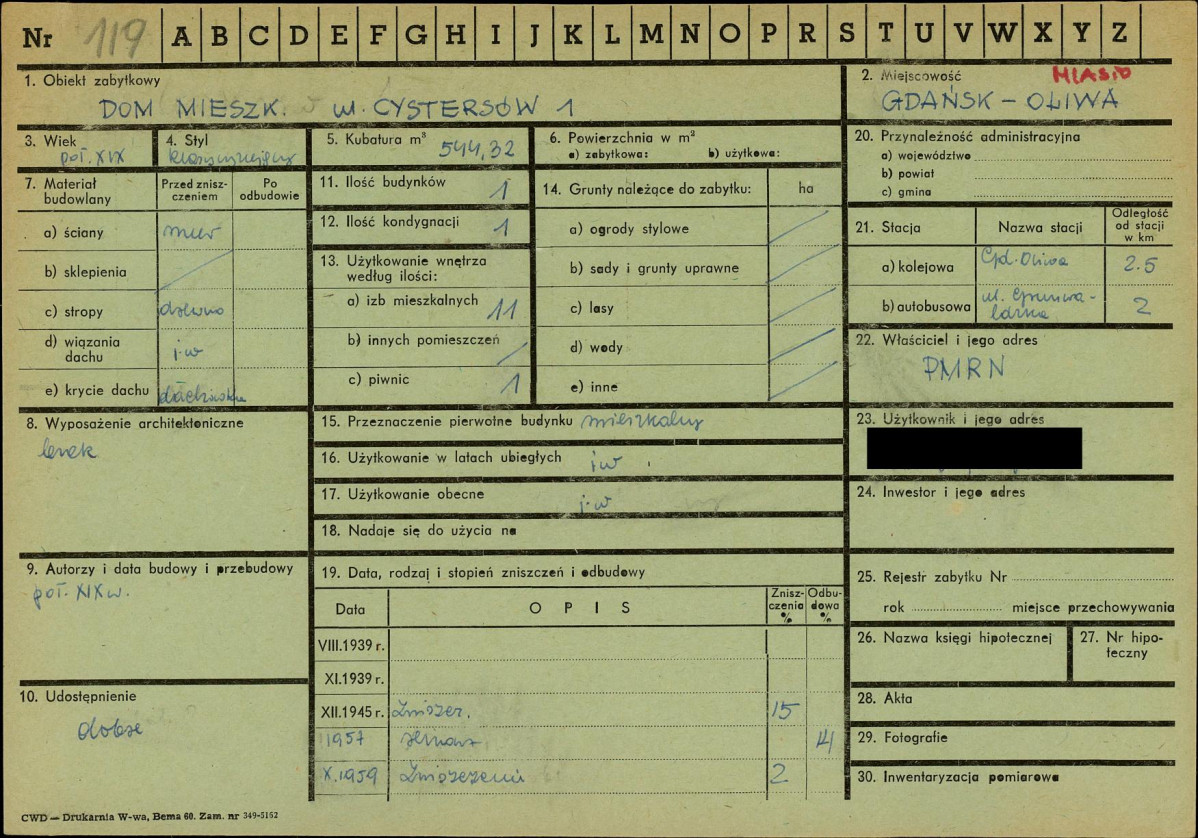 Nr 119 A B C D E F G H I J K L M N O P R S T U V W X Y Z
1. Obiekt zabytkowy
DOM MIESZK. ul. CYSTERSÓW 1
2. Miejscowość MIASTO
GDAŃSK - OLIWA
3. Wiek
poł. XIX
4. Styl
5. Kubatura m³ 544,32
6. Powierzchnia w m²
a) zabytkowa: b) użytkowa:
20. Przynależność administracyjna
a) województwo
b) powiat
c) gmina
7. Materiał budowlany
Przed znisz-
czeniem
Po
odbudowie
a) ściany mur
b) sklepienia
c) stropy drewno
d) wiązania
dachu j.w
e) krycie dachu dachówka
11. Ilość budynków 1
12. Ilość kondygnacji 1
13. Użytkowanie wnętrza
według ilości:
a) izb mieszkalnych 11
b) innych pomieszczeń
c) piwnic 1
14. Grunty należące do zabytku: ha
a) ogrody stylowe
b) sady i grunty uprawne
c) lasy
d) wody
e) inne
21. Stacja Nazwa stacji
Odległość
od stacji
w km
a) kolejowa Gd.-Oliwa 2.5
b) autobusowa ul. Grunwa-
ldzka 2
22. Właściciel i jego adres
PMRN
8. Wyposażenie architektoniczne
15. Przeznaczenie pierwotne budynku mieszkalny
16. Użytkowanie w latach ubiegłych j.w
17. Użytkowanie obecne j.w
18. Nadaje się do użycia na
23. Użytkownik i jego adres
24. Inwestor i jego adres
9. Autorzy i data budowy i przebudowy
poł. XIX w.
19. Data, rodzaj i stopień zniszczeń i odbudowy
Data OPIS
Znisz-
czenia
%
Odbu-
dowa
%
VIII.1939 r.
XI.1939 r.
XII.1945 r. Zniszcz. 15
1957 14
X.1959 Zniszczenia 2
25. Rejestr zabytku Nr
rok miejsce przechowywania
26. Nazwa księgi hipotecznej
27. Nr hipo-
teczny
10. Udostępnienie
dobre
28. Akta
29. Fotografie
30. Inwentaryzacja pomiarowa
CWD — Drukarnia W-wa, Bema 60. Zam. nr 349-5152